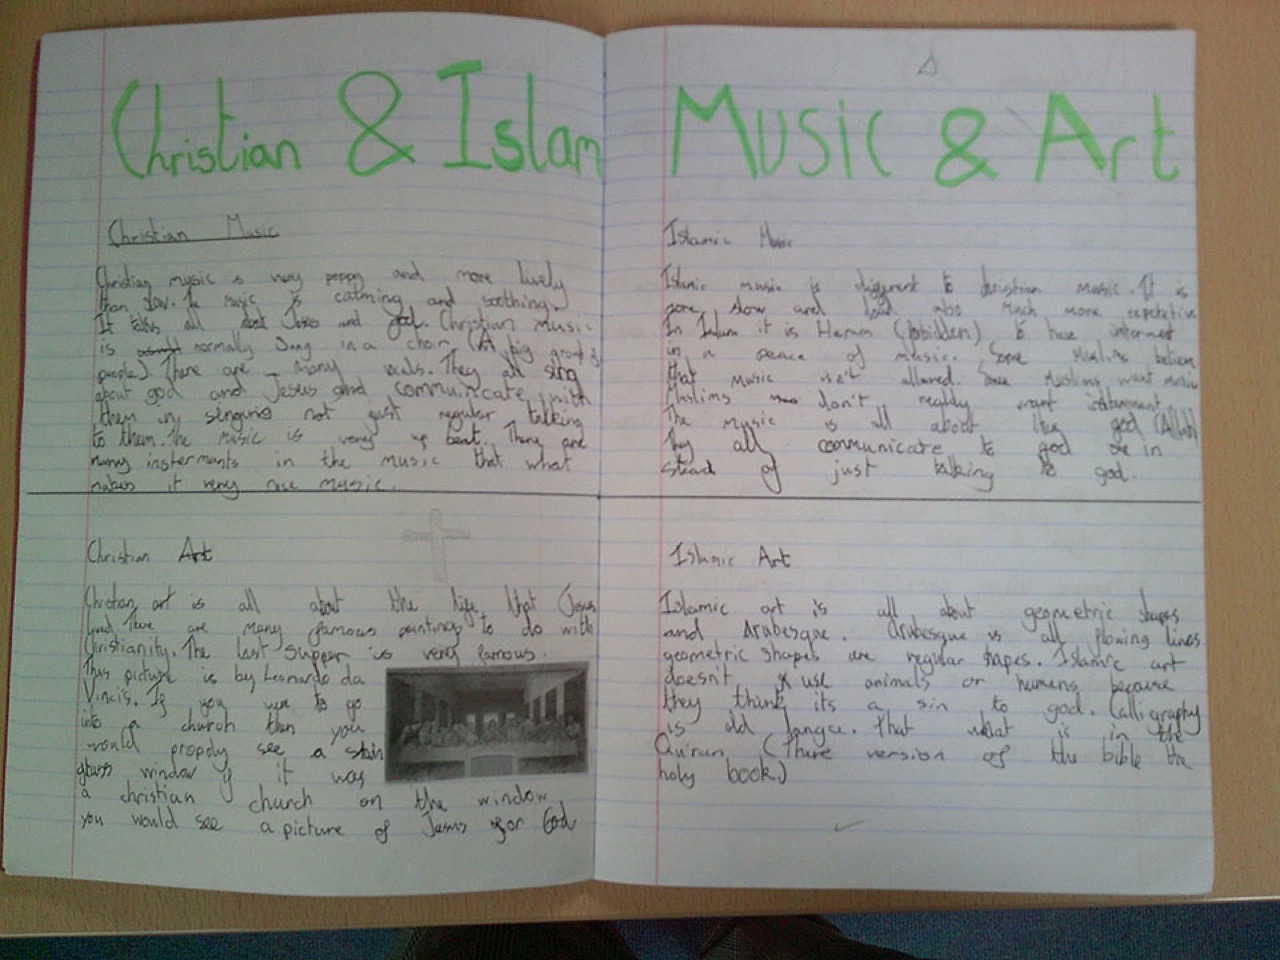 Christian & Islam Music & Art
Christian Music
Christian music is very poppy and more lively
than slow. The music is calming and soothing.
It talks all about Jesus and god. Christian music
is normally sung in a choir (A big group of
people) There are many vocals. They all sing
about god and Jesus and communicate with
them in singing not just regular talking
to them. The music is very up beat. They are
many insterments in the music that what
makes it very nice music.
Islamic Music
Islamic music is different to christian music. It is
more slow and loud also much more repetative
In Islam it is Haram (forbidden) to have
in a peace of music. Some Muslims believe
that music isn't allowed. Some Muslims want music
Muslims don't really want insterment
The music is all about they god (Allah)
They all communicate to god in
stead of just talking to god.
Christian Art
Christian art is all about the life that Jesus
lived. There are many famous paintings to do with
Christianity. The last supper is very famous.
This picture is by Leonardo da
Vinci's. If you were to go
into a church then you
would propely see a stain
glass window if it was
a christian church on the window
you would see a picture of Jesus or God
Islamic Art
Islamic art is all about geometric shapes
and Arabesque. Arabesque is all flowing lines
geometric shapes are regular shapes. Islamic art
doesn't use animals or humans because
they think its a sin to god. Calligraphy
is old langue. that what is in the
Qu'ran (There version of the bible the
holy book)